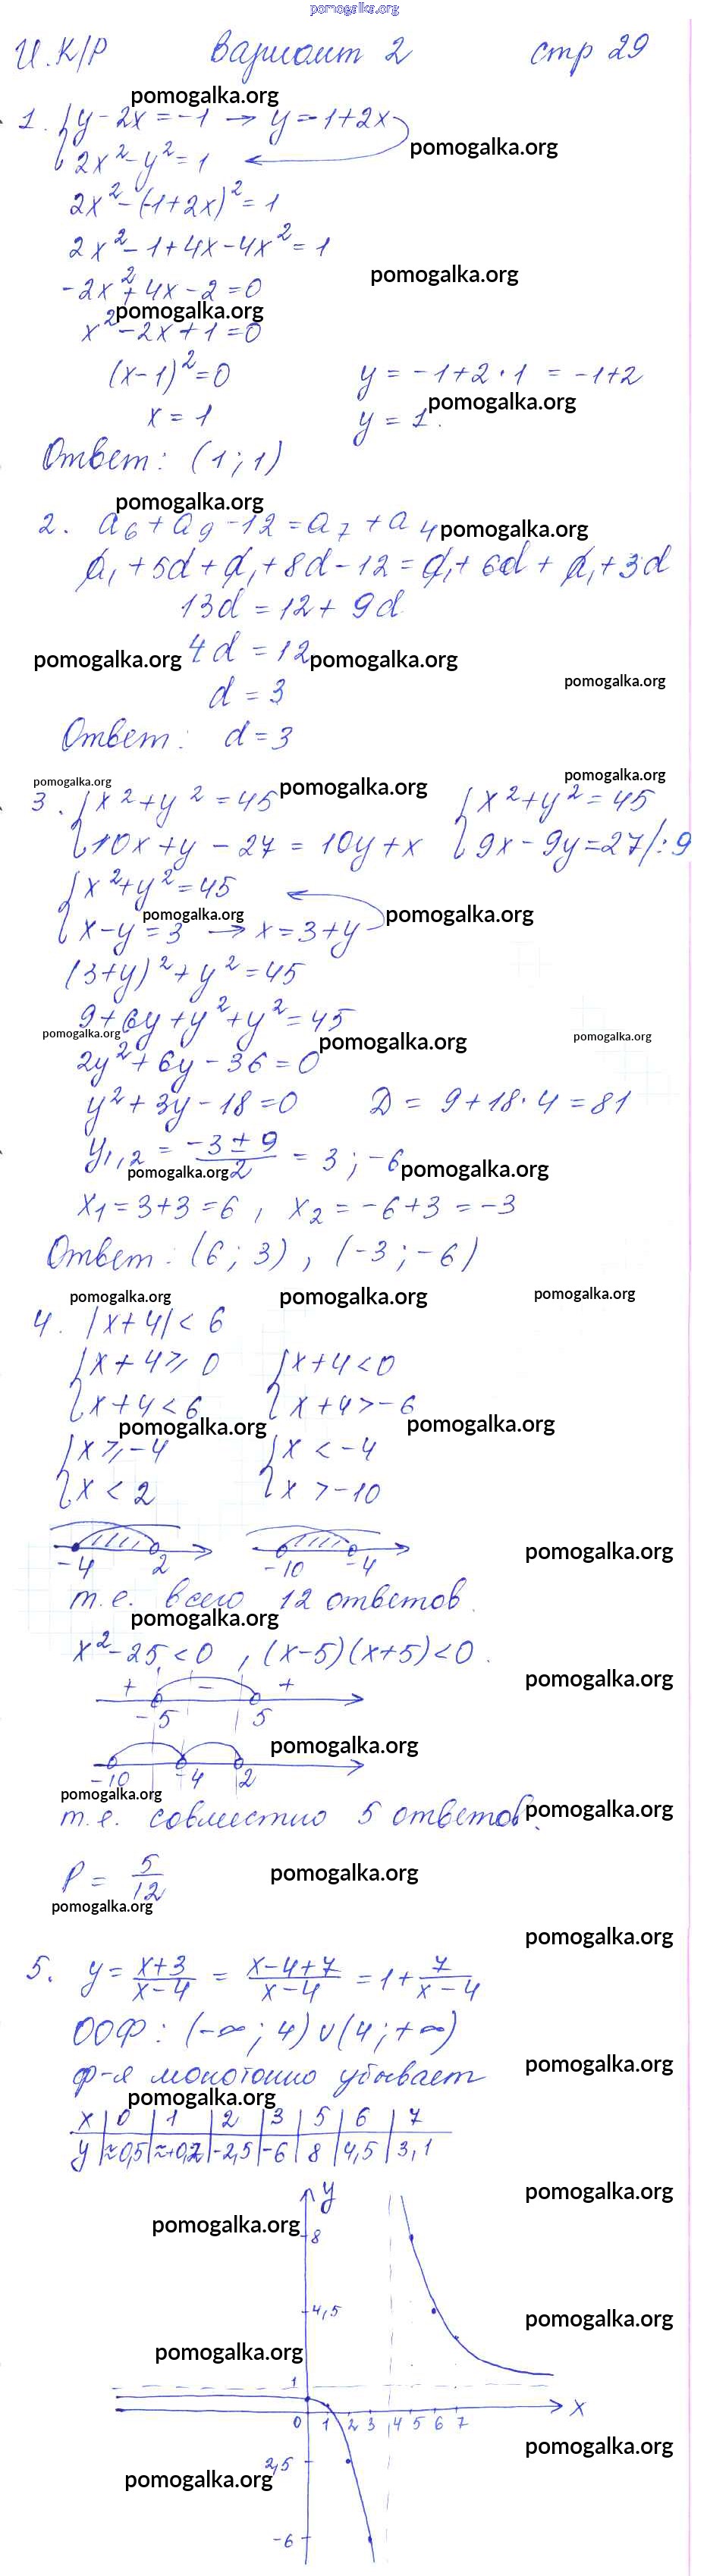 pomogalka.org
И.К/Р вариант 2 стр 29
pomogalka.org
1. { y - 2x = -1 → y = -1+2x
{ 2x² - y² = 1 ← pomogalka.org
2x² - (-1+2x)² = 1
2x² - 1 + 4x - 4x² = 1
pomogalka.org
-2x² + 4x - 2 = 0
pomogalka.org
x² - 2x + 1 = 0
(x-1)² = 0 y = -1+2·1 = -1+2
pomogalka.org
x = 1 y = 1.
Ответ: (1; 1)
pomogalka.org
2. a₆ + a₉ - 12 = a₇ + a₄ pomogalka.org
a₁ + 5d + a₁ + 8d - 12 = a₁ + 6d + a₁ + 3d
13d = 12 + 9d
pomogalka.org 4d = 12 pomogalka.org
pomogalka.org
d = 3
Ответ: d = 3
pomogalka.org pomogalka.org pomogalka.org
3. { x² + y² = 45 { x² + y² = 45
{ 10x + y - 27 = 10y + x { 9x - 9y = 27 /:9
{ x² + y² = 45 ←
pomogalka.org pomogalka.org
{ x - y = 3 → x = 3 + y
(3+y)² + y² = 45
9 + 6y + y² + y² = 45
pomogalka.org pomogalka.org pomogalka.org
2y² + 6y - 36 = 0
y² + 3y - 18 = 0 D = 9 + 18·4 = 81
y₁,₂ = (-3 ± 9)/2 = 3; -6 pomogalka.org
pomogalka.org
x₁ = 3+3 = 6, x₂ = -6+3 = -3
Ответ: (6; 3), (-3; -6)
pomogalka.org pomogalka.org pomogalka.org
4. |x+4| < 6
{ x+4 ⩾ 0 { x+4 < 0
{ x+4 < 6 { x+4 > -6
pomogalka.org pomogalka.org
{ x ⩾ -4 { x < -4
{ x < 2 { x > -10
pomogalka.org
-4 2 -10 -4
т.е. всего 12 ответов.
pomogalka.org
x² - 25 < 0, (x-5)(x+5) < 0.
pomogalka.org
+ - +
-5 5
pomogalka.org
-10 -4 2
pomogalka.org
т.е. совместно 5 ответов. pomogalka.org
P = 5/12 pomogalka.org
pomogalka.org
pomogalka.org
5. y = (x+3)/(x-4) = (x-4+7)/(x-4) = 1 + 7/(x-4)
ООФ: (-∞; 4) ∪ (4; +∞)
pomogalka.org
ф-я монотонно убывает
pomogalka.org
x | 0 | 1 | 2 | 3 | 5 | 6 | 7
y | ≈0,5 | ≈+0,2 | -2,5 | -6 | 8 | 4,5 | 3,1
y
pomogalka.org
pomogalka.org
8
4,5
pomogalka.org
pomogalka.org
1
x
0 1 2 3 4 5 6 7
pomogalka.org
2,5
pomogalka.org
-6